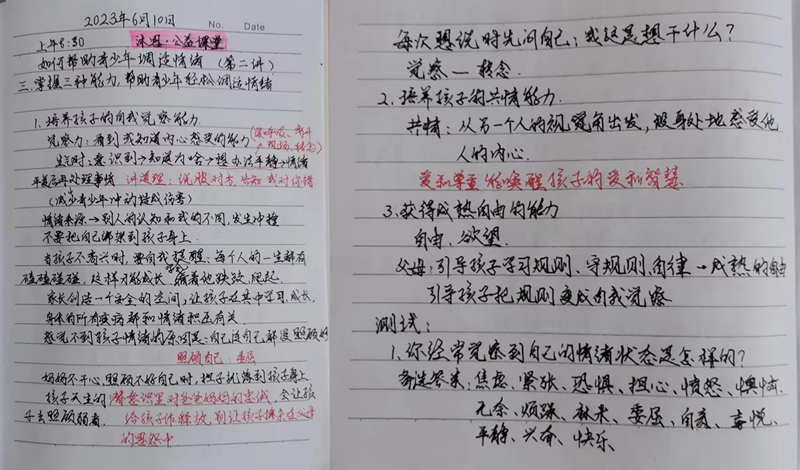 2023年6月10日
No.
Date
上午8:30 沐恩·公益课堂
如何帮助青少年调适情绪 (第二讲)
三.掌握三种能力,帮助青少年轻松调适情绪
1.培养孩子的自我觉察能力
觉察力:看到我知道内心感受的能力(深呼吸、离开
现场、转念)
生气时:意识到→知道为啥→想办法平静→情绪
平着后再处理事情 讲道理:说服对方,告知我对你错
(减少青少年冲动造成伤害)
情绪来源→别人的认知和我的不同,发生冲撞
不要把自己绑架到孩子身上.
当孩子不高兴时,要自我提醒:每个人的一生都有
磕磕碰碰,这样才能成长 陪着他跌跤,爬起.
家长创造一个安全的空间,让孩子在其中学习,成长.
身体的所有疾病都和情绪积压有关.
感觉不到孩子情绪的原因是:自己连自己都没照顾好
照顾自己
妈妈不开心,照顾不好自己时,担子就落到孩子身上
孩子天生的潜意识里对爸爸妈妈的忠诚,会让孩
子去照顾弱者. 给孩子作释放,别让孩子撕杀在父母
的恩怨中
每次想说时先问自己:我这是想干什么?
觉察—转念.
2.培养孩子的共情能力.
共情:从另一个人的视觉角出发,设身处地感受他
人的内心.
爱和尊重能唤醒孩子的爱和智慧
3.获得成熟自由的能力
自由、欲望.
父母:引导孩子学习规则、守规则,自律→成熟的自由
引导孩子把规则变成自我觉察
测试:
1.你经常觉察到自己的情绪状态是怎样的?
备选答案:焦虑、紧张、恐惧、担心、愤怒、懊恼.
无奈、烦躁、麻木、委屈、自责、喜悦、
平静、兴奋、快乐